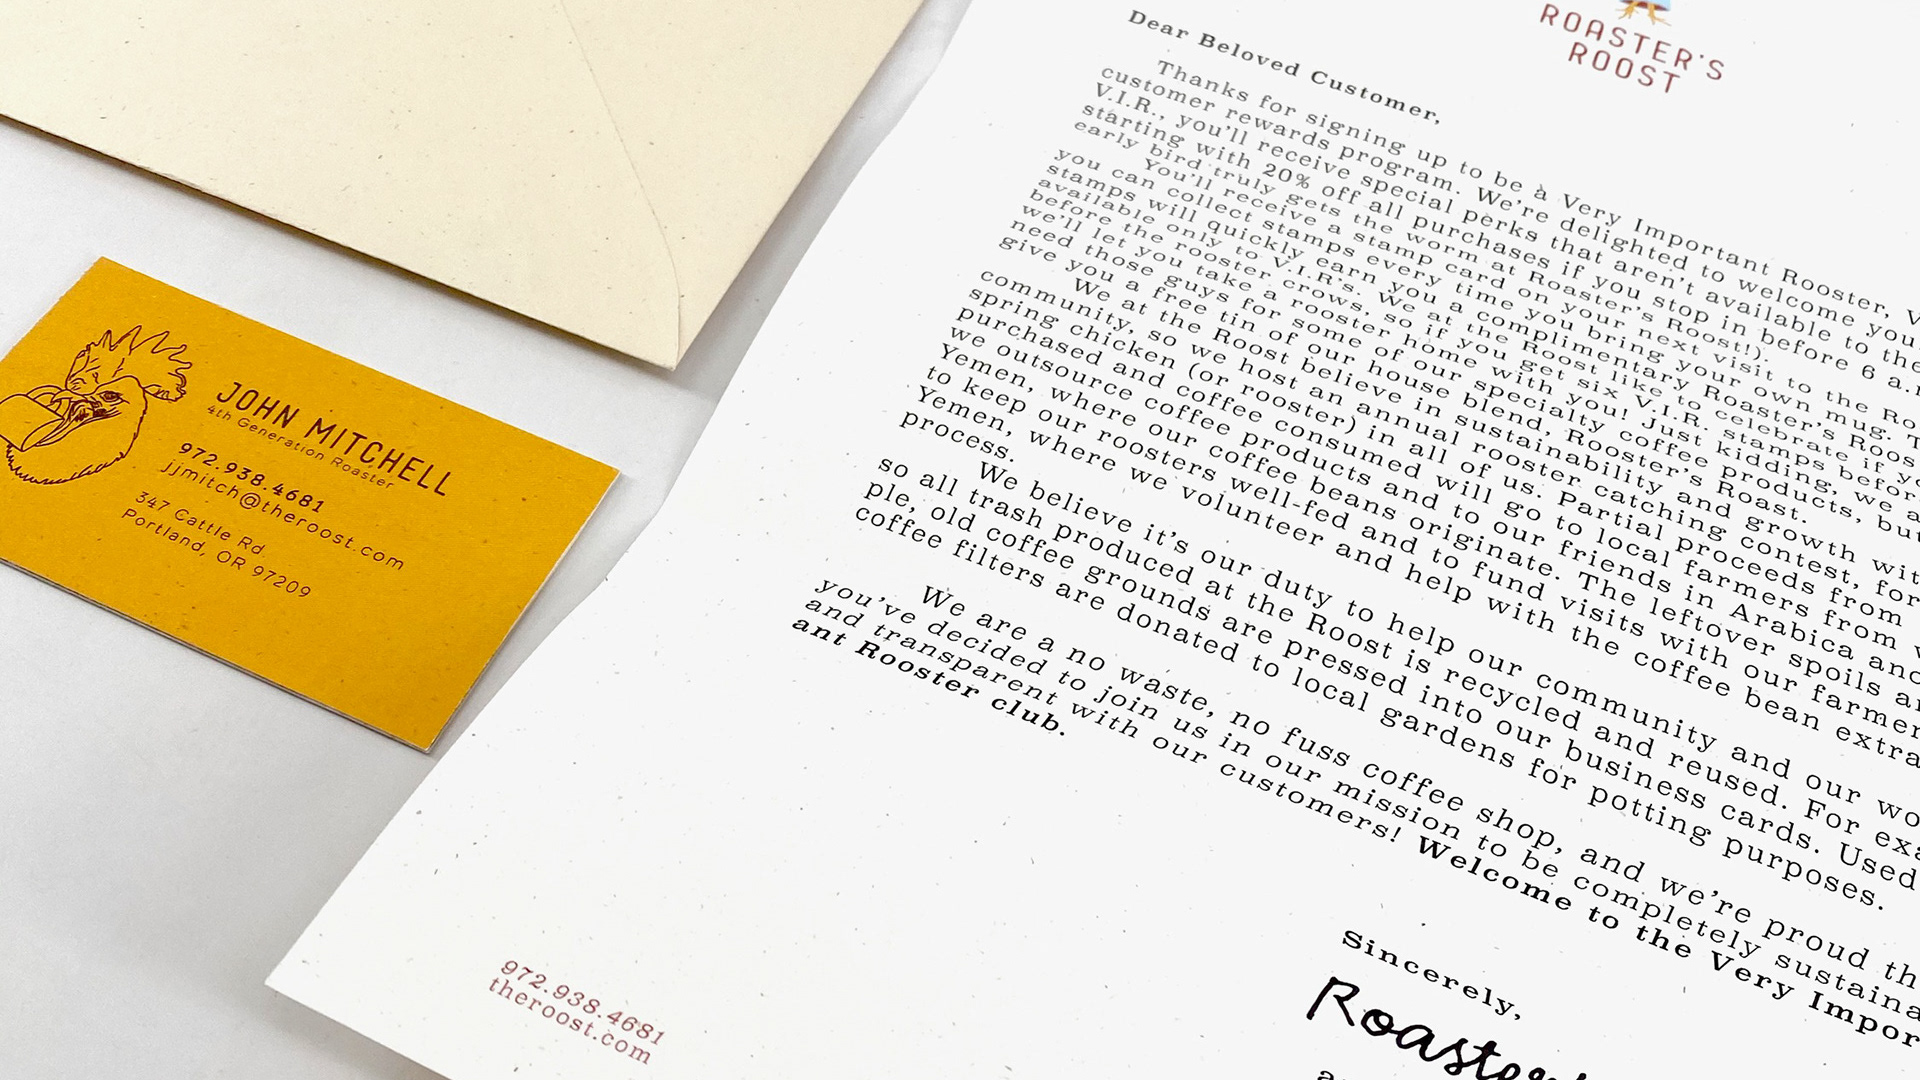 JOHN MITCHELL
4th Generation Roaster
972.938.4681
jjmitch@theroost.com
347 Cattle Rd.
Portland, OR 97209
ROASTER'S
ROOST
Dear Beloved Customer,
Thanks for signing up to be a Very Important Rooster, V
customer rewards program. We're delighted to welcome you
V.I.R., you'll receive special perks that aren't available to the
starting with 20% off all purchases if you stop in before 6 a.m
early bird truly gets the worm at Roaster's Roost!).
You'll receive a stamp card on your next visit to the Roo
you can collect stamps every time you bring your own mug. T
stamps will quickly earn you a complimentary Roaster's Roos
available only to V.I.R's. We at the Roost like to celebrate if yo
before the rooster crows, so if you get six V.I.R. stamps before
we'll let you take a rooster home with you! Just kidding, we a
need those guys for some of our specialty coffee products, but
give you a free tin of our house blend, Rooster's Roast.
We at the Roost believe in sustainability and growth with
community, so we host an annual rooster catching contest, for
spring chicken (or rooster) in all of us. Partial proceeds from
purchased and coffee consumed will go to local farmers from w
we outsource coffee products and to our friends in Arabica and
Yemen, where our coffee beans originate. The leftover spoils ar
to keep our roosters well-fed and to fund visits with our farmer
Yemen, where we volunteer and help with the coffee bean extra
process.
We believe it's our duty to help our community and our wo
so all trash produced at the Roost is recycled and reused. For exa
ple, old coffee grounds are pressed into our business cards. Used
coffee filters are donated to local gardens for potting purposes.
We are a no waste, no fuss coffee shop, and we're proud th
you've decided to join us in our mission to be completely sustaina
and transparent with our customers! Welcome to the Very Impor
ant Rooster club.
Sincerely,
Roaster'
972.938.4681
theroost.com